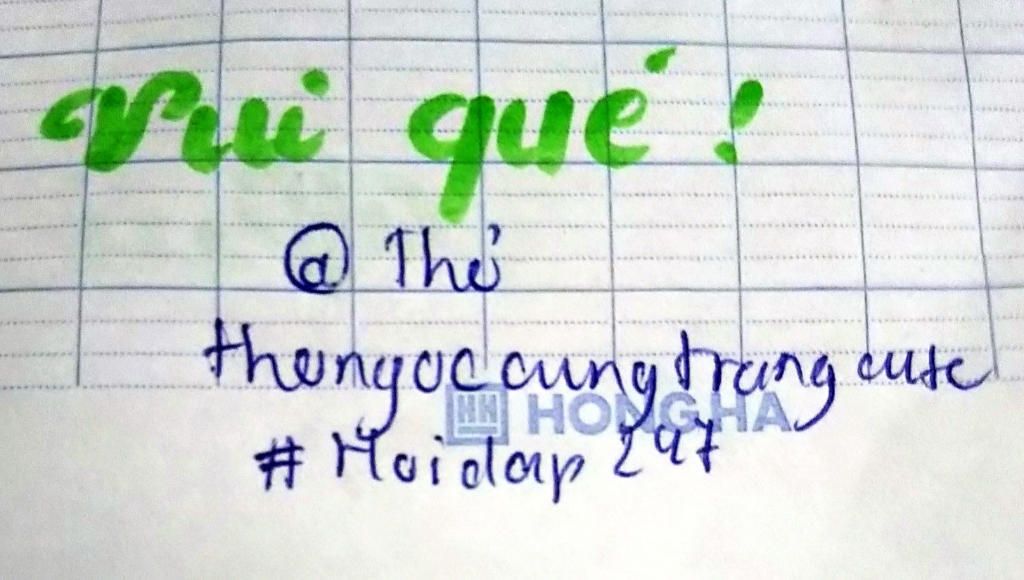 Vui qué!
@ Thỏ
thongoccungtrangcute
HONG HA
# Hoidap 247